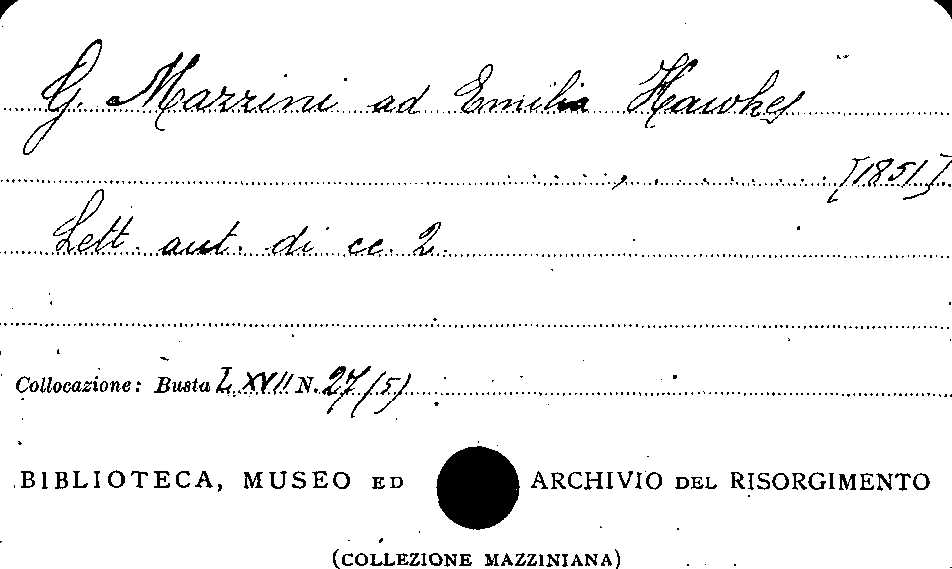 G. Mazzini ad Emilia Hawkes
[1851].
Lett. aut. di cc. 2.
Collocazione: Busta LXVII N. 27(5)
BIBLIOTECA, MUSEO ED ARCHIVIO DEL RISORGIMENTO
(COLLEZIONE MAZZINIANA)